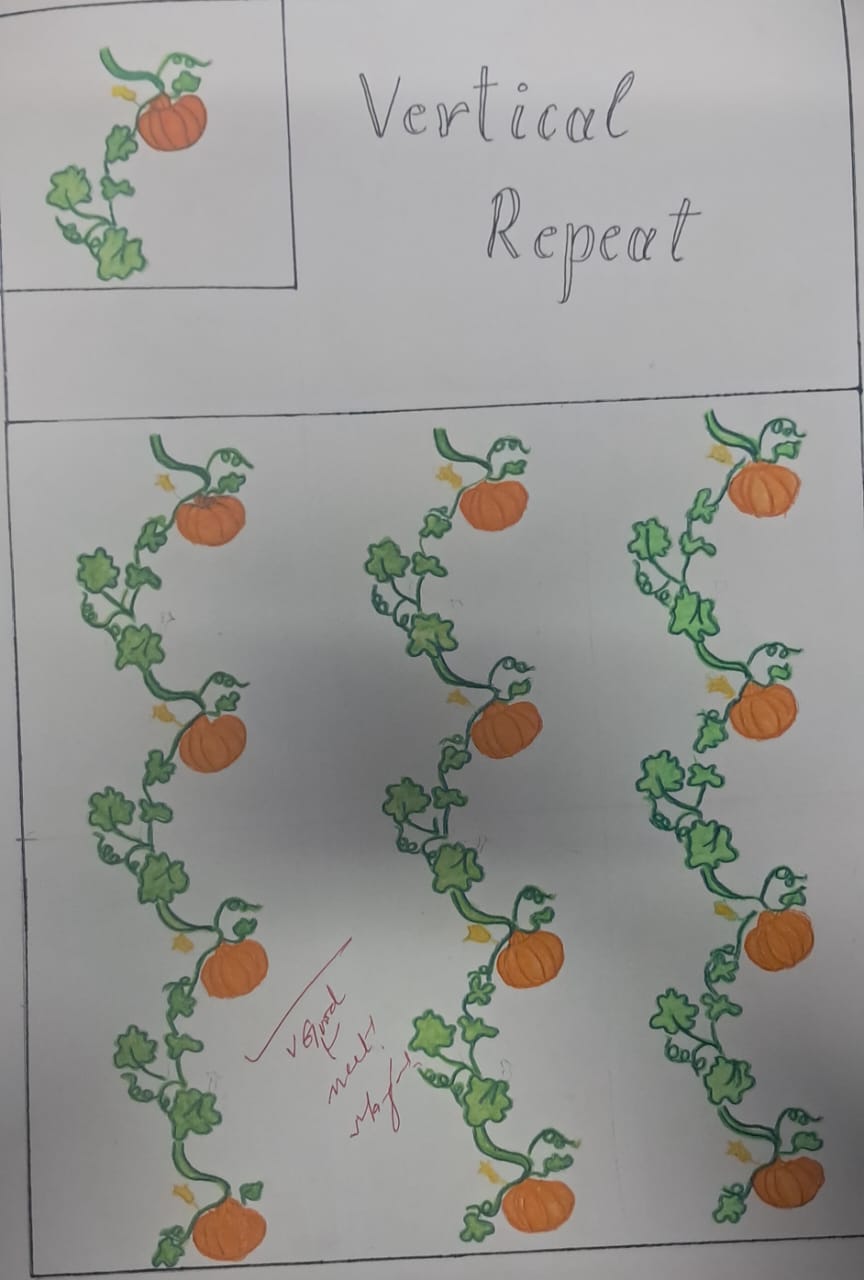 Vertical
Repeat
v Good
neat